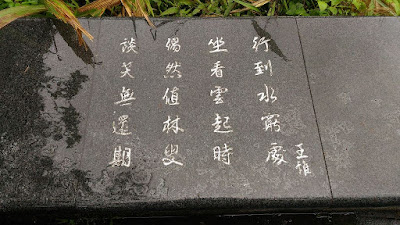 行到水窮處
坐看雲起時
偶然值林叟
談笑無還期
王維